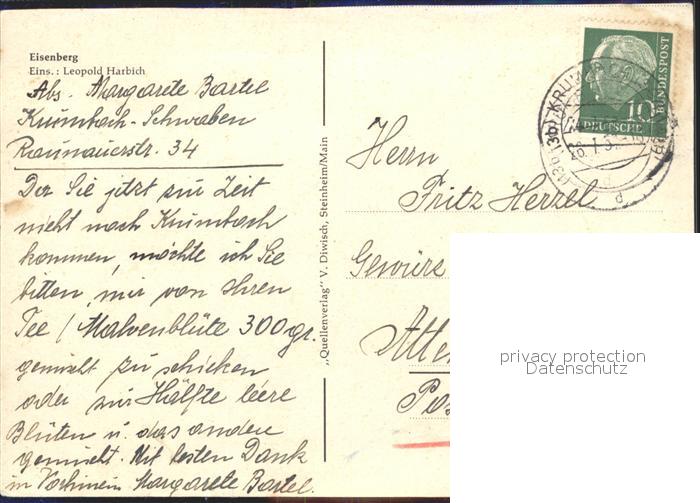 Eisenberg
Eins.: Leopold Harbich
Abs. Margarete Bartel
Krumbach-Schwaben
Raunauerstr. 34
Da Sie jetzt zur Zeit
nicht nach Krumbach
kommen, möchte ich Sie
bitten, mir von Ihren
Tee / Malvenblüte 300 gr.
gemischt zu schicken
oder zur Hälfte leere
Blüten u. das andere
gemischt. Mit besten Dank
im Vorhinein Margarete Bartel.
„Quellenverlag" V. Diwisch, Steinheim/Main
Herrn
Fritz Herzel
Gewürz
Alten
Pos
10
DEUTSCHE
BUNDESPOST
(13b) KRUMBACH
26.1.5
d
privacy protection
Datenschutz